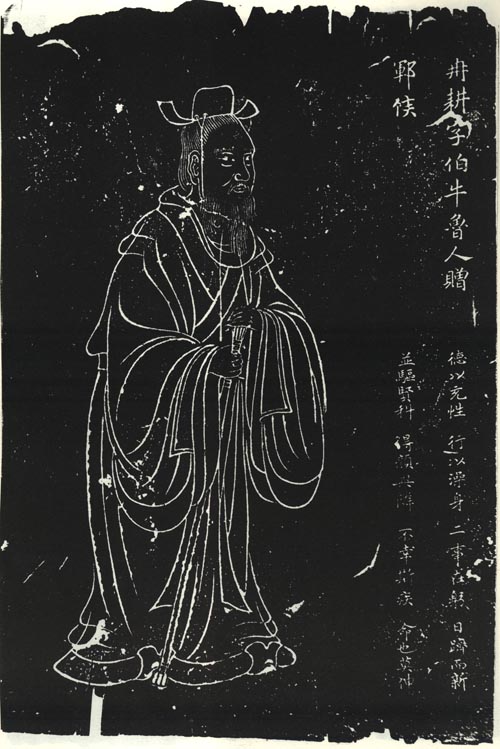 冉耕字伯牛魯人贈
鄆侯
德以充性 行以澡身 二事在躬 日躋而新
並驅賢科 得顏與鄰 不幸斯疾 命也莫伸